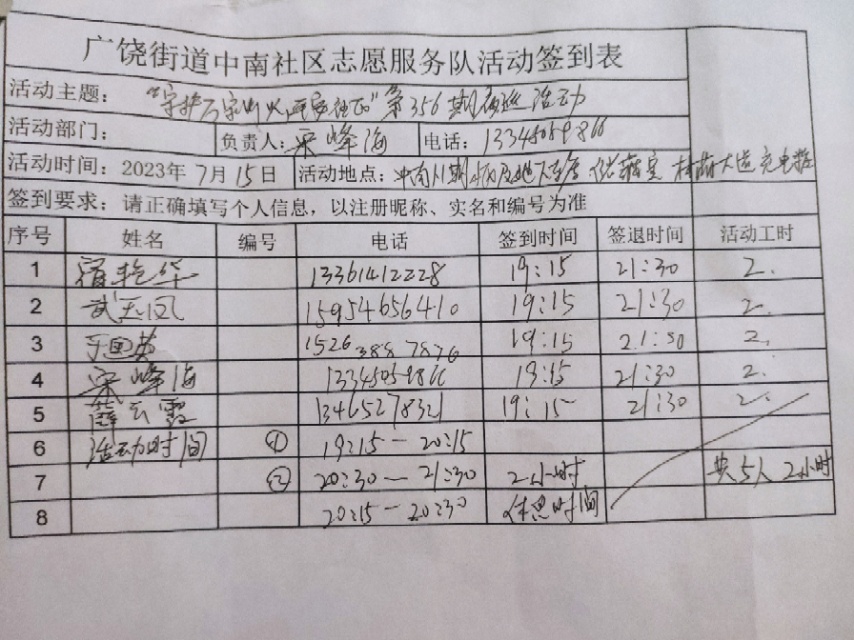 广饶街道中南社区志愿服务队活动签到表
活动主题： "守护万家灯火 平安社区"第356期夜巡活动
活动部门： 负责人：宋峰海 电话：13345059866
活动时间：2023年7月15日 活动地点：中南 储藏室 大道充电桩
签到要求：请正确填写个人信息，以注册昵称、实名和编号为准
序号 姓名 编号 电话 签到时间 签退时间 活动工时
1 艳华 13361412228 19:15 21:30 2.
2 武玉凤 15954656410 19:15 21:30 2.
3 15263887876 19:15 21:30 2.
4 宋峰海 13345059866 19:15 21:30 2.
5 薛云霞 13465278321 19:15 21:30 2.
6 活动时间 ① 19:15—20:15
7 ② 20:30—21:30 2小时 共5人2小时
8 20:15—20:30 休息时间